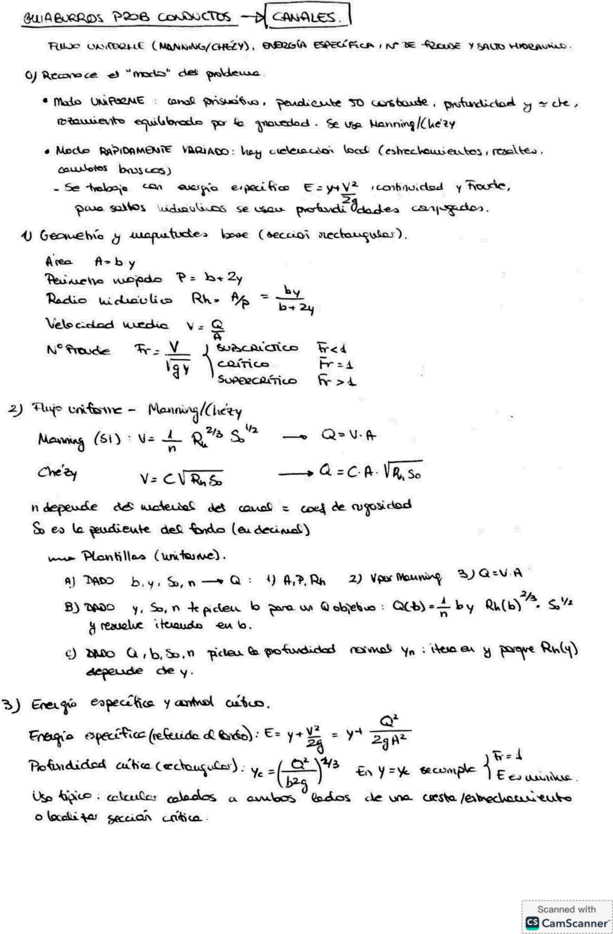 GUIABURROS PROB CONDUCTOS → CANALES.
FLUJO UNIFORME (MANNING/CHÉZY), ENERGÍA ESPECÍFICA, Nº DE FROUDE Y SALTO HIDRÁULICO.
0) Reconoce el "modo" del problema.
• Modo UNIFORME: canal prismático, pendiente S0 constante, profundidad y ≈ cte,
rozamiento equilibrado por la gravedad. Se usa Manning/Chézy
• Modo RAPIDAMENTE VARIADO: hay aceleración local (estrechamientos, resaltes,
cambios bruscos)
- Se trabaja con energía específica E = y + V²/2g, continuidad y Froude,
para saltos hidráulicos se usan profundidades conjugadas.
1) Geometría y magnitudes base (sección rectangular).
Área A = b y
Perímetro mojado P = b + 2y
Radio hidráulico Rh = A/P = by/(b + 2y)
Velocidad media V = Q/A
Nº Froude Fr = V/√(gy) { SUBCRÍTICO Fr < 1
CRÍTICO Fr = 1
SUPERCRÍTICO Fr > 1
2) Flujo uniforme - Manning/Chézy
Manning (SI): V = 1/n Rh^2/3 So^1/2 → Q = V·A
Chézy V = C√(Rh So) → Q = C·A·√(Rh So)
n depende del material del canal = coef de rugosidad
So es la pendiente del fondo (en decimal)
Plantillas (uniforme).
A) DADO b, y, So, n → Q: 1) A, P, Rh 2) V por Manning 3) Q = V·A
B) DADO y, So, n te piden b para un Q objetivo: Q(b) = 1/n by Rh(b)^2/3 · So^1/2
y resuelve iterando en b.
c) DADO Q, b, So, n piden la profundidad normal yn: itera en y porque Rh(y)
depende de y.
3) Energía específica y control crítico.
Energía específica (referida al fondo): E = y + V²/2g = y + Q²/2gA²
Profundidad crítica (rectangular): yc = (Q²/b²g)^1/3 En y = yc se cumple { Fr = 1
E es mínima.
Uso típico: calcular calados a ambos lados de una cresta/estrechamiento
o localizar sección crítica.
Scanned with
CS CamScanner